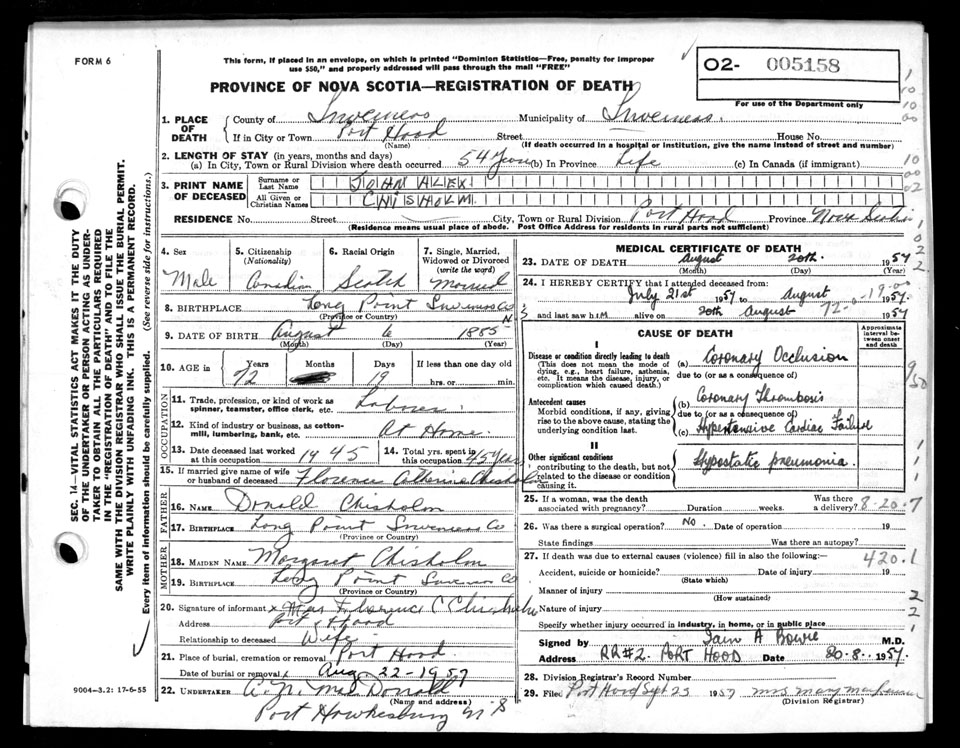 FORM 6
This form, if placed in an envelope, on which is printed "Dominion Statistics—Free, penalty for improper
use $50," and properly addressed will pass through the mail "FREE"
O2- 005158
For use of the Department only
PROVINCE OF NOVA SCOTIA—REGISTRATION OF DEATH
1. PLACE OF DEATH
County of Inverness Municipality of Inverness
If in City or Town Port Hood Street House No.
(Name) (If death occurred in a hospital or institution, give the name instead of street and number)
2. LENGTH OF STAY (in years, months and days)
(a) In City, Town or Rural Division where death occurred 54 Years (b) In Province Life (c) In Canada (if immigrant)
3. PRINT NAME OF DECEASED
Surname or Last Name JOHN ALEX.
All Given or Christian Names CHISHOLM.
RESIDENCE No. Street City, Town or Rural Division Port Hood Province Nova Scotia
(Residence means usual place of abode. Post Office Address for residents in rural parts not sufficient)
4. Sex Male
5. Citizenship (Nationality) Canadian
6. Racial Origin Scotch
7. Single, Married, Widowed or Divorced (write the word) Married
8. BIRTHPLACE Long Point Inverness Co
(Province or Country)
9. DATE OF BIRTH August 6 1885
(Month) (Day) (Year)
10. AGE in Years Months Days If less than one day old
72 19 hrs. or min.
OCCUPATION
11. Trade, profession, or kind of work as
spinner, teamster, office clerk, etc. Laborer
12. Kind of industry or business, as cotton-
mill, lumbering, bank, etc. At Home
13. Date deceased last worked at this occupation 1945
14. Total yrs. spent in this occupation 45 Years
15. If married give name of wife
or husband of deceased Florence Catherine Chisholm
FATHER
16. NAME Donald Chisholm
17. BIRTHPLACE Long Point Inverness Co
(Province or Country)
MOTHER
18. MAIDEN NAME Margaret Chisholm
19. BIRTHPLACE Long Point Inverness Co
(Province or Country)
20. Signature of informant x Mrs Florence C Chisholm
Address Port Hood
Relationship to deceased Wife
21. Place of burial, cremation or removal Port Hood
Date of burial or removal Aug 22-1957
22. UNDERTAKER MacDonald
(Name and address)
Port Hawkesbury N S
MEDICAL CERTIFICATE OF DEATH
23. DATE OF DEATH August 20th. 1957
(Month) (Day) (Year)
24. I HEREBY CERTIFY that I attended deceased from:
July 21st 1957 to August 1957.
and last saw h im alive on 20th August 1957
CAUSE OF DEATH
Approximate interval between onset and death
I
Disease or condition directly leading to death
(This does not mean the mode of
dying, e.g., heart failure, asthenia,
etc. It means the disease, injury, or
complication which caused death.)
(a) Coronary Occlusion
due to (or as a consequence of)
Antecedent causes
Morbid conditions, if any, giving
rise to the above cause, stating the
underlying condition last.
(b) Coronary Thrombosis
due to (or as a consequence of)
(c) Hypertensive Cardiac Failure
II
Other significant conditions
contributing to the death, but not
related to the disease or condition
causing it.
Hypostatic pneumonia.
25. If a woman, was the death Was there
associated with pregnancy? Duration weeks. a delivery?
8-20-7
26. Was there a surgical operation? No. Date of operation 19
State findings Was there an autopsy?
27. If death was due to external causes (violence) fill in also the following:—
420.1
Accident, suicide or homicide? Date of injury 19
(State which)
Manner of injury
(How sustained)
Nature of injury
Specify whether injury occurred in industry, in home, or in public place
Signed by Iain A Bowie M.D.
Address RR#2. PORT HOOD Date 20.8. 1957.
28. Division Registrar's Record Number
29. Filed Port Hood Sept 25 1957
(Division Registrar)
SEC. 14—VITAL STATISTICS ACT MAKES IT THE DUTY
OF THE UNDERTAKER OR PERSON ACTING AS UNDER-
TAKER TO OBTAIN ALL THE PARTICULARS REQUIRED
IN THE "REGISTRATION OF DEATH" AND TO FILE THE
SAME WITH THE DIVISION REGISTRAR WHO SHALL ISSUE THE BURIAL PERMIT.
WRITE PLAINLY WITH UNFADING INK. THIS IS A PERMANENT RECORD.
Every item of information should be carefully supplied. (See reverse side for instructions.)
9004-3.2: 17-6-55